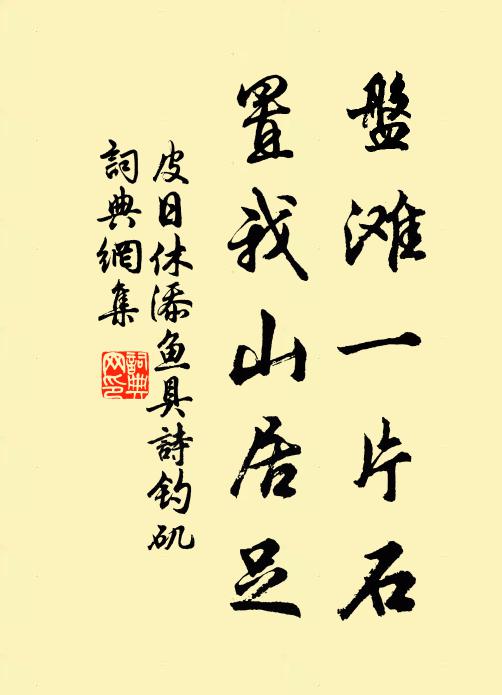 盤滩一片石
置我山居足
皮日休添鱼具詩钓矶
詞典網集
詞典网印